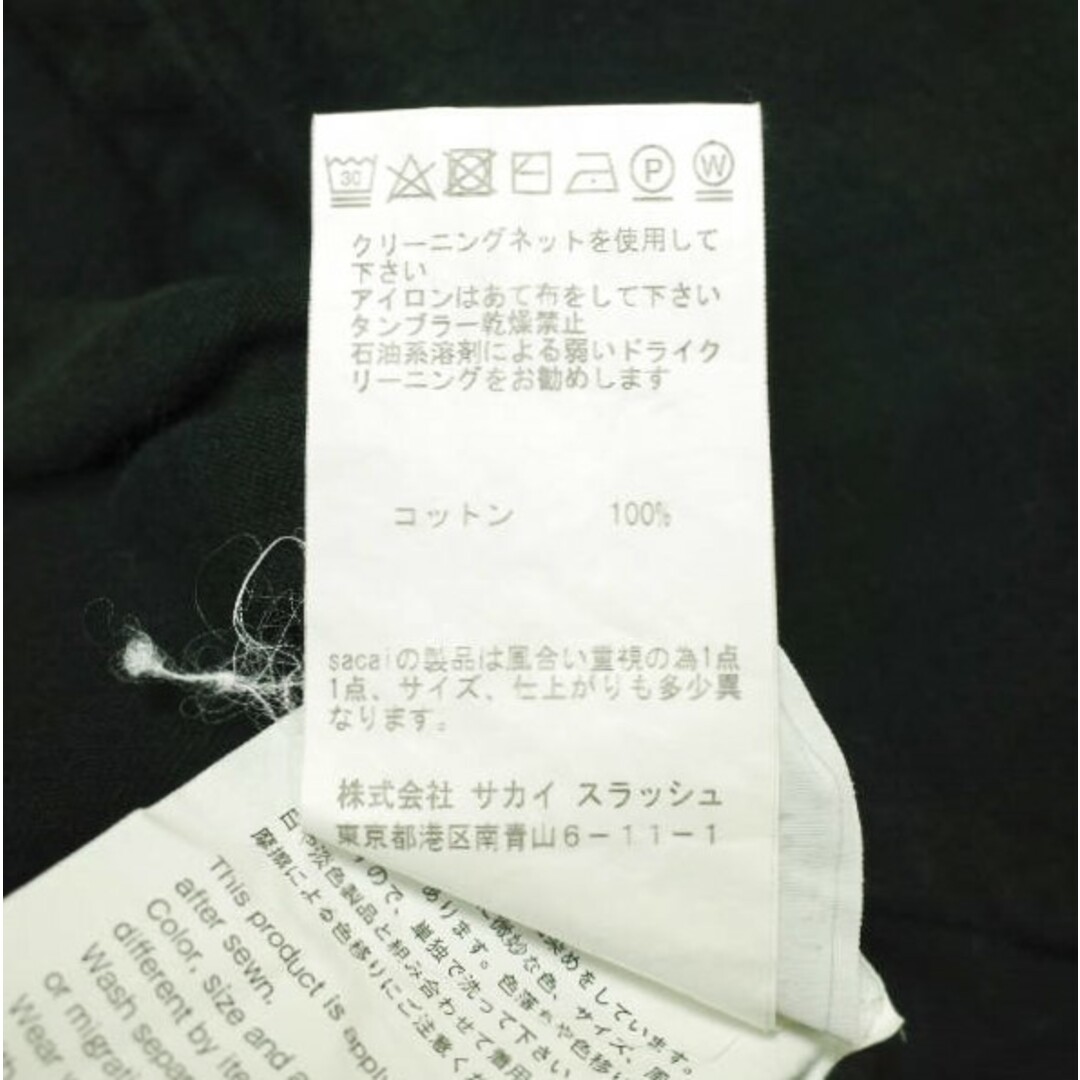 30
P
W
クリーニングネットを使用して
下さい
アイロンはあて布をして下さい
タンブラー乾燥禁止
石油系溶剤による弱いドライク
リーニングをお勧めします
コットン 100%
sacaiの製品は風合い重視の為1点
1点、サイズ、仕上がりも多少異
なります。
株式会社 サカイ スラッシュ
東京都港区南青山6-11-1
染めをしています。
微妙な色、サイズ、風
あります。色落ちや色移
ので、単独で洗って下さい
白や淡色製品と組み合わせて着用
摩擦による色移りにご注意く
This product is
after sewn.
Color, size and
different by
Wash
or
Wear